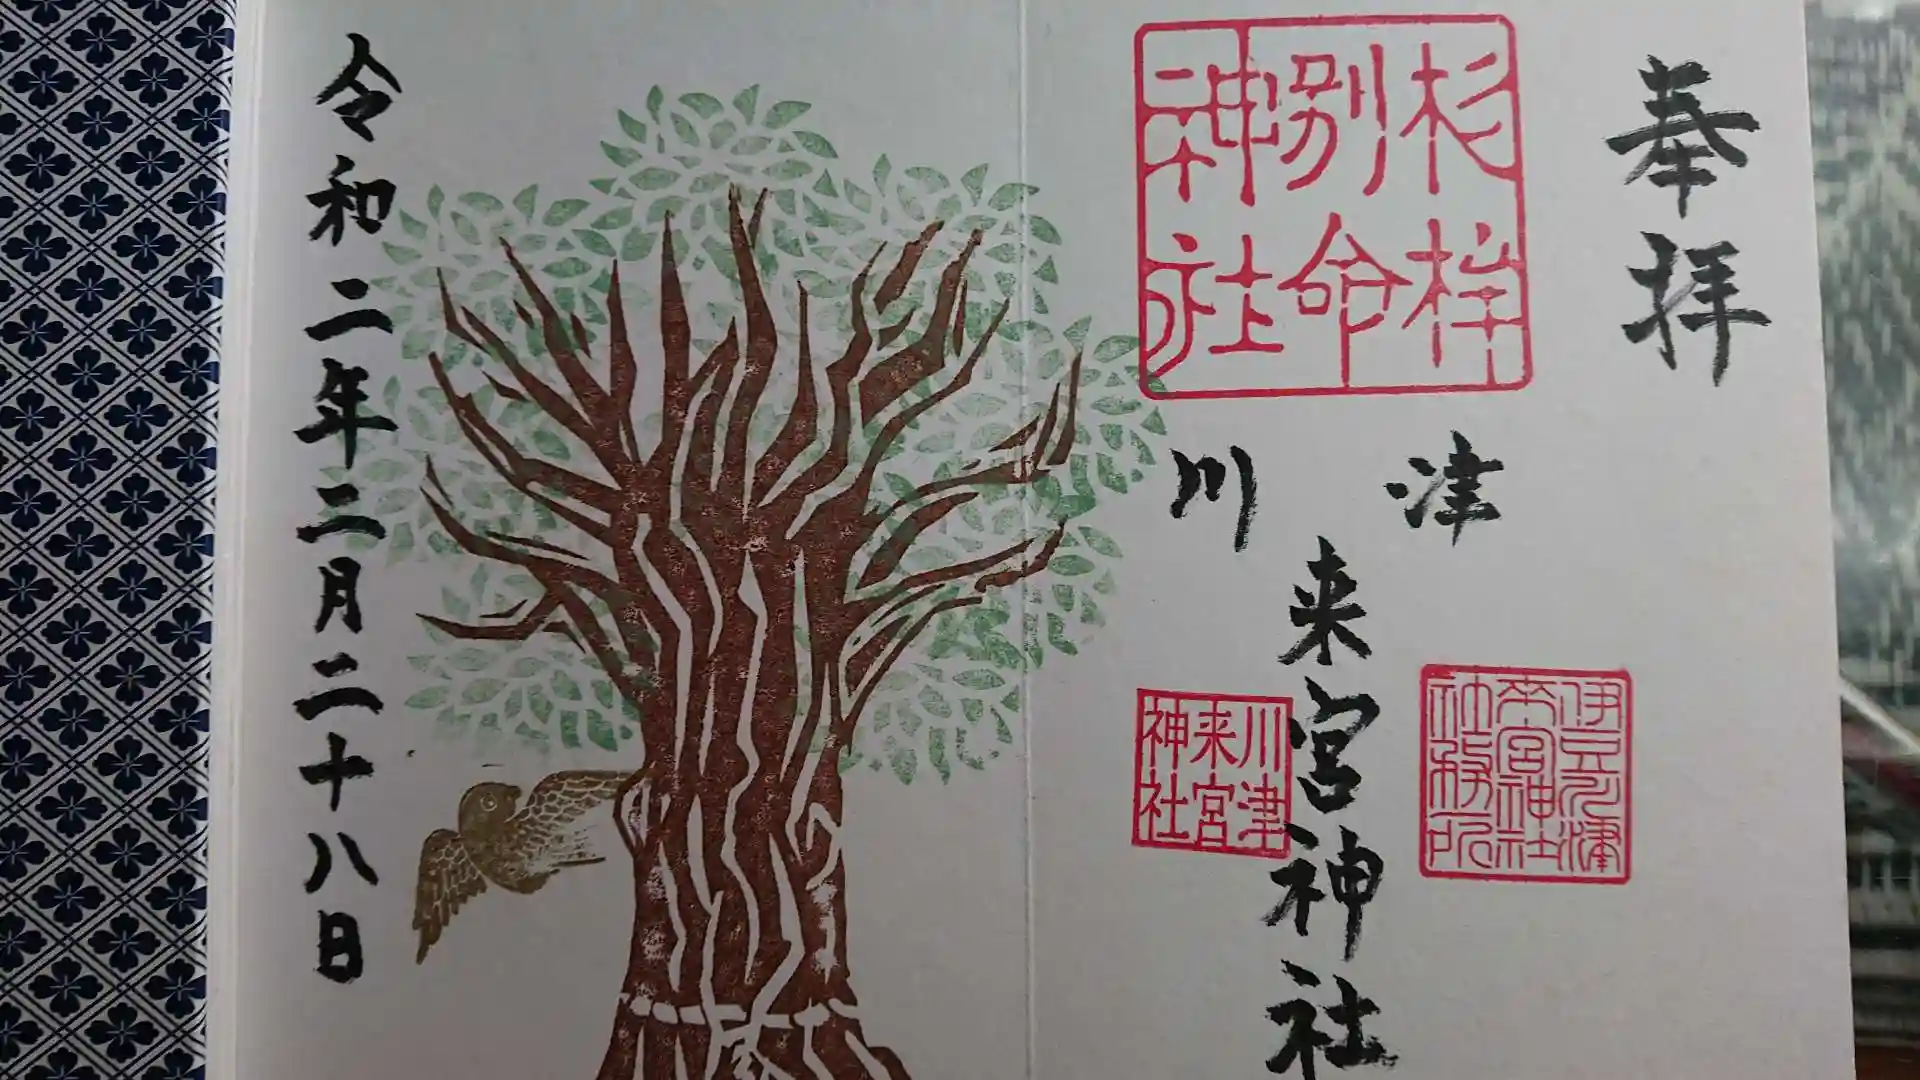 奉拝
杉桙
別命
神社
川津
来宮神社
伊豆川津
来宮神社
社務所
川津
来宮
神社
令和二年二月二十八日